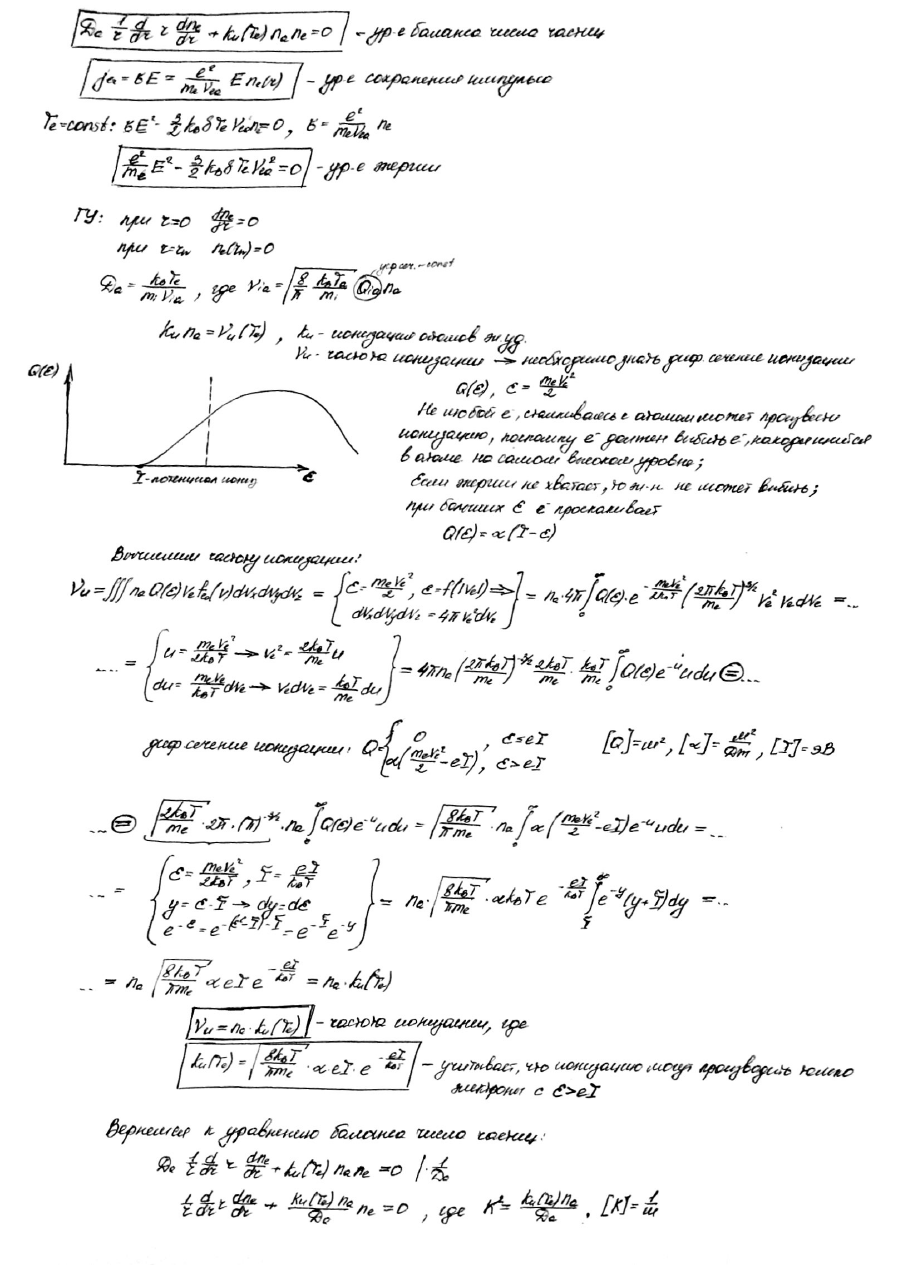 Dₐ 1/r d/dr r dnₑ/dr + kᵤ(Tₑ) nₐ nₑ = 0 – ур-е баланса числа частиц
jₑₐ = σE = e²/(mₑ νₑₐ) E nₑ(r) – ур-е сохранения импульса
Tₑ=const: σE² - 3/2 k₀ δ Tₑ νₑₐ nₑ = 0, σ = e²/(mₑ νₑₐ) nₑ
e²/mₑ E² - 3/2 k₀ δ Tₑ νₑₐ² = 0 – ур-е энергии
ГУ: при r=0 dnₑ/dr = 0
при r=rw nₑ(rw)=0
уср.сеч.–const
Dₐ = k₀Tₑ/(mᵢ νᵢₐ), где νᵢₐ = √(8/π k₀Tₐ/mᵢ) Qᵢₐ nₐ
Kᵤ nₐ = νᵤ(Tₑ), kᵤ - ионизация атомов эл.уд.
νᵤ - частота ионизации → необходимо знать диф. сечение ионизации
Q(ε)
Q(ε), ε = mₑVₑ²/2
Не любой e⁻, сталкиваясь с атомом может произвести
ионизацию, поскольку e⁻ должен выбить e⁻, находящийся
в атоме на самом высоком уровне;
I-потенциал иониз ε
Если энергии не хватает, то эл-н не может выбить;
при больших ε e⁻ проскакивает
Q(ε) = α(I-ε)
Вычислим частоту ионизации:
νᵤ = ∭ nₐ Q(ε) Vₑ fₑ₀(v) dVₓ dVy dVz = {ε = mₑVₑ²/2, ε=f(|Vₑ|) ⇒ dVₓ dVy dVz = 4π Vₑ² dVₑ} = nₐ 4π ∫₀^∞ Q(ε)·e^(-mₑVₑ²/2k₀T) (2πk₀T/mₑ)^(-3/2) Vₑ² Vₑ dVₑ = ...
... = {u = mₑVₑ²/2k₀T → Vₑ² = 2k₀T/mₑ u; du = mₑVₑ/k₀T dVₑ → Vₑ dVₑ = k₀T/mₑ du} = 4π nₐ (2πk₀T/mₑ)^(-3/2) 2k₀T/mₑ · k₀T/mₑ ∫₀^∞ Q(ε) e^(-u) u du = ...
диф сечение ионизации: Q = {0, ε ≤ eI; α(mₑVₑ²/2 - eI), ε > eI} [Q]=м², [α]=м²/Дж, [I]=эВ
... = √(2k₀T/mₑ) · 2π · (π)^(-3/2) · nₐ ∫₀^∞ Q(ε) e^(-u) u du = √(8k₀T/πmₑ) · nₐ ∫₀^∞ α(mₑVₑ²/2 - eI) e^(-u) u du = ...
... = {ε = mₑVₑ²/2k₀T, Ĩ = eI/k₀T; y = ε-Ĩ → dy = dε; e^(-ε) = e^(-(ε-Ĩ)-Ĩ) = e^(-Ĩ) e^(-y)} = nₐ · √(8k₀T/πmₑ) · αk₀T e^(-eI/k₀T) ∫_Ĩ^∞ e^(-y) (y+Ĩ) dy = ...
... = nₐ √(8k₀T/πmₑ) α e I e^(-eI/k₀T) = nₐ · kᵤ(Tₑ)
νᵤ = nₐ · kᵤ(Tₑ) – частота ионизации, где
kᵤ(Tₑ) = √(8k₀T/πmₑ) · α e I · e^(-eI/k₀T) – учитывает, что ионизацию могут производить только
электроны с ε>eI
Вернемся к уравнению баланса числа частиц:
Dₐ 1/r d/dr r dnₑ/dr + kᵤ(Tₑ) nₐ nₑ = 0 | · 1/Dₐ
1/r d/dr r dnₑ/dr + kᵤ(Tₑ) nₐ/Dₐ nₑ = 0, где K² = kᵤ(Tₑ) nₐ/Dₐ, [K] = 1/м